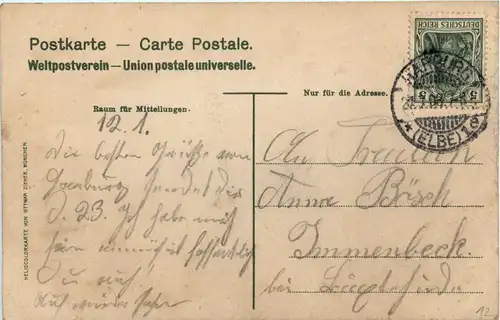 Postkarte — Carte Postale.
Weltpostverein — Union postale universelle.
DEUTSCHES REICH
5 5
HARBURG
* (ELBE) 1
Nur für die Adresse.
Raum für Mitteilungen.
12.1.
Die besten Grüße von
Harburg sendet dir
Ich habe mich
hier amüsiert hoffentlich
Du auch!
Auf
An Fräulein
Anna Bösch
Immenbeck.
bei
HELIOCOLORKARTE VON OTTMAR ZIEHER, MÜNCHEN.
12